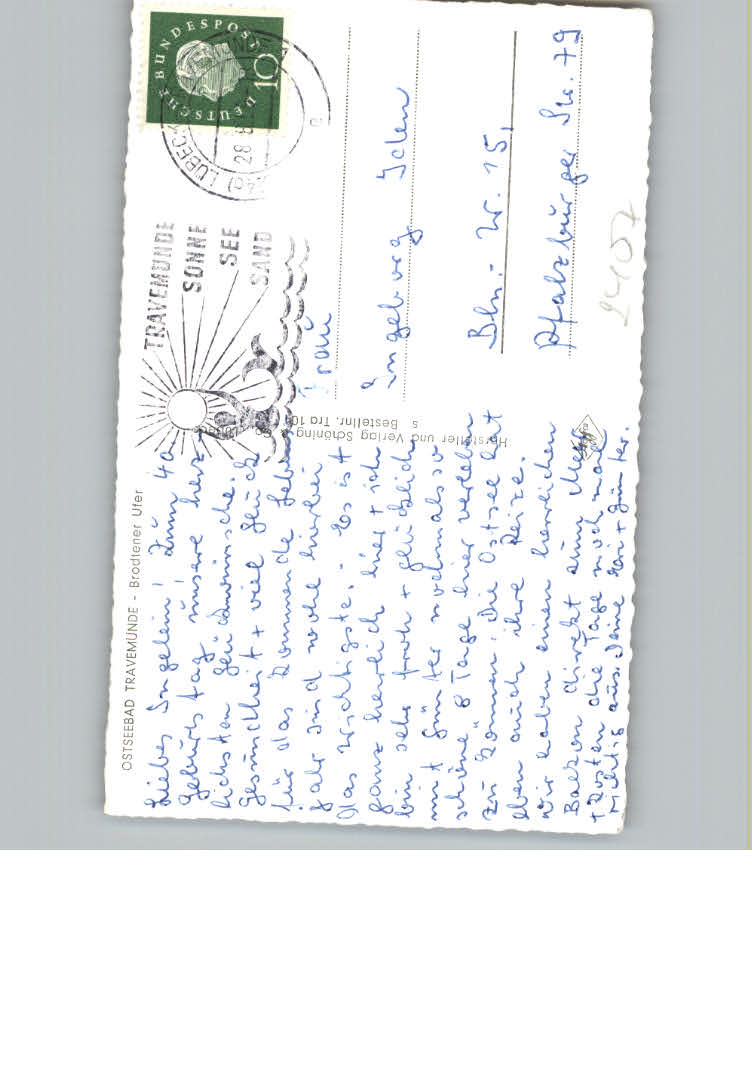 OSTSEEBAD TRAVEMÜNDE - Brodtener Ufer
Liebes Ingelein! Zum 40.
Geburtstag unsere herz-
lichsten Glückwünsche.
Gesundheit + viel Glück
für das kommende Lebens-
jahr sind wohl hierbei
das Wichtigste. - Es ist
ganz herrlich hier + ich
bin sehr froh + glücklich
mit Günter nochmals so
schöne 8 Tage hier verleben
zu können. Die Ostsee hat
eben auch ihre Reize.
Wir haben einen herrlichen
Balkon direkt zum Meer
+ kosten die Tage noch mal
richtig aus. Deine + Günter.
Hersteller und Verlag Schöning
s Bestellnr. Tra 10
DEUTSCHE BUNDESPOST
10
LÜBECK
28.8
e
TRAVEMÜNDE
SONNE
SEE
SAND
Frau
Ingeborg
Bln.- W. 15,
Pfalzburger Str. 79
2407